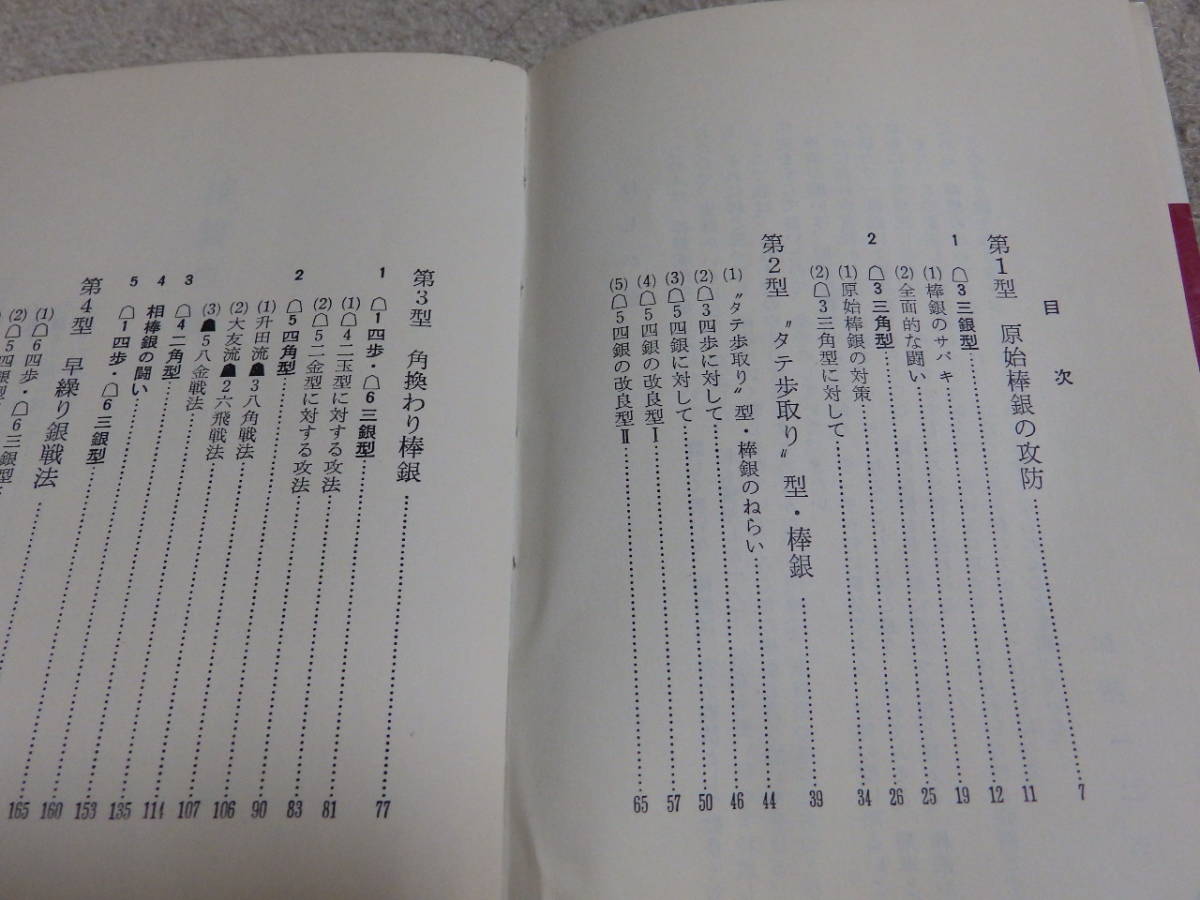 目次
第1型 原始棒銀の攻防……7
1 ☖3三銀型……11
(1)棒銀のサバキ……12
(2)全面的な闘い……19
2 ☖3三角型……25
(1)原始棒銀の対策……26
(2)☖3三角型に対して……34
第2型 〝タテ歩取り〟型・棒銀……39
(1)〝タテ歩取り〟型・棒銀のねらい……44
(2)☖3四歩に対して……46
(3)☖5四銀に対して……50
(4)☖5四銀の改良型Ⅰ……57
(5)☖5四銀の改良型Ⅱ……65
第3型 角換わり棒銀……77
1 ☖1四歩・☖6三銀型……81
(1)☖4二玉型に対する攻法……83
(2)☖5二金型に対する攻法……90
2 ☖5四角型……106
(1)升田流☗3八角戦法……107
(2)大友流☗2六飛戦法……114
(3)☗5八金戦法……135
3 ☖4二角型……153
4 相棒銀の闘い……160
5 ☖1四歩・☖6三銀型……165
第4型 早繰り銀戦法……
(1)☖6四歩・☖6三銀型
(2)☖5四銀型